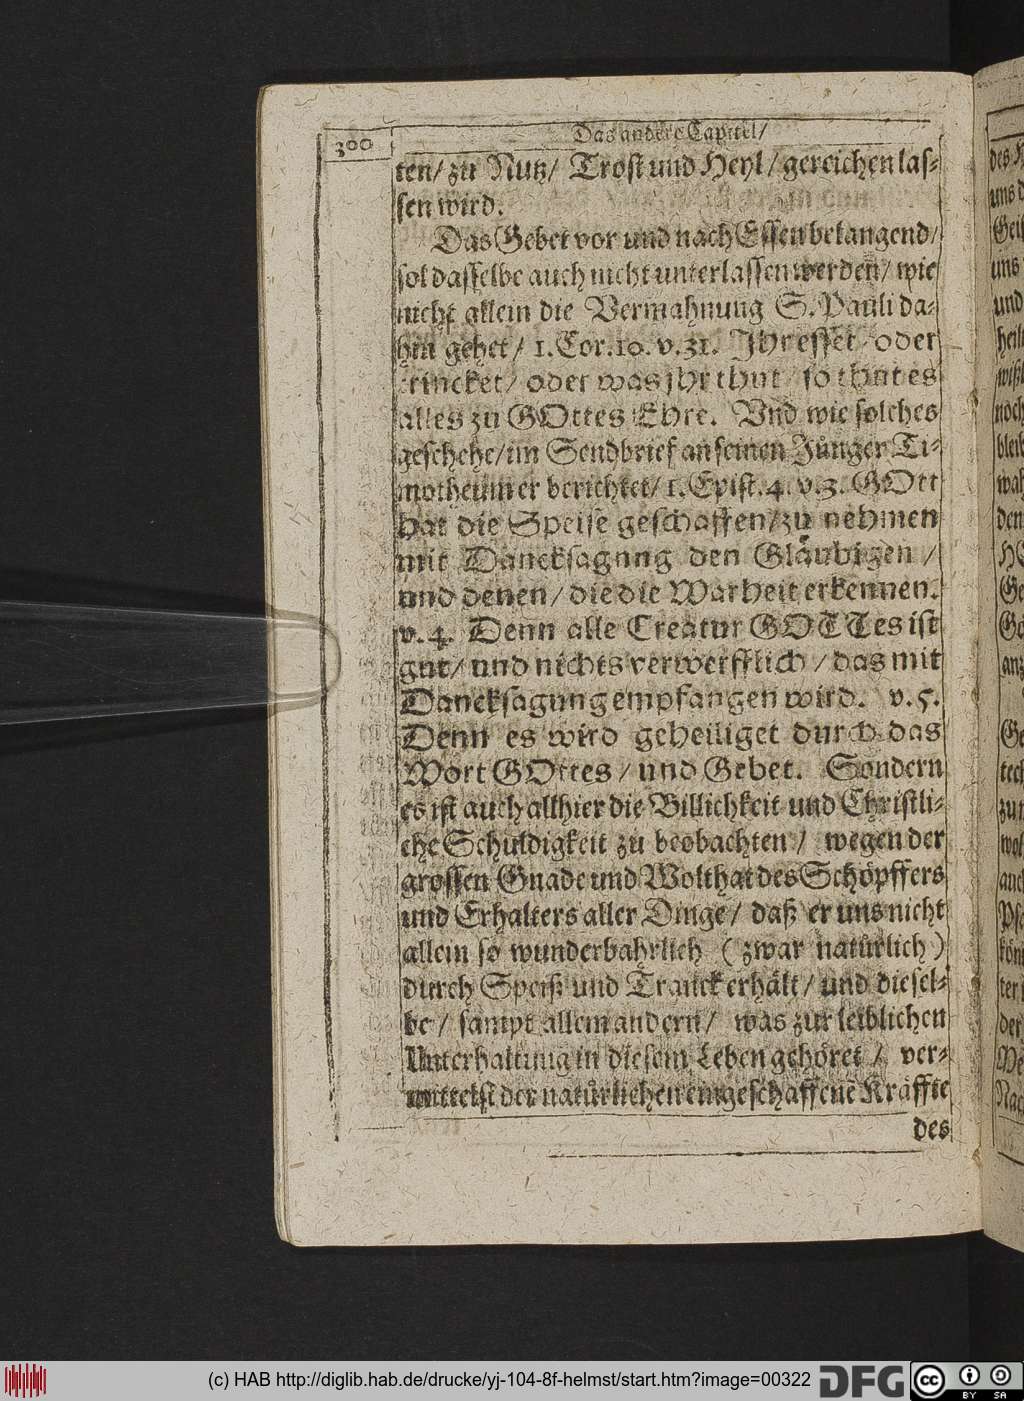 300
Das andere Capitel/
ten/ zu Nutz/ Trost und Heyl/ gereichen las-
sen wird.
Das Gebet vor und nach Essen belangend/
sol dasselbe auch nicht unterlassen werden/ wie
nicht allein die Vermahnung S. Pauli da-
hin gehet/ 1. Cor. 10. v. 31. Jhr esset/ oder
trincket/ oder was jhr thut/ so thut es
alles zu GOttes Ehre. Vnd wie solches
geschehe/ im Sendbrief an seinen Jünger Ti-
motheum er berichtet/ 1. Epist. 4. v. 3. GOtt
hat die Speise geschaffen/ zu nehmen
mit Dancksagung den Gläubigen/
und denen/ die die Warheit erkennen.
v. 4. Denn alle Creatur GOTTes ist
gut/ und nichts verwerfflich/ das mit
Dancksagung empfangen wird. v. 5.
Denn es wird geheiliget durch das
Wort GOttes/ und Gebet. Sondern
es ist auch allhier die Billichkeit und Christli-
che Schuldigkeit zu beobachten/ wegen der
grossen Gnade und Wolthat des Schöpffers
und Erhalters aller Dinge/ daß er uns nicht
allein so wunderbahrlich (zwar natürlich)
durch Speiß und Tranck erhält/ und diesel-
be/ sampt allem andern/ was zur leiblichen
Unterhaltung in diesem Leben gehöret/ ver-
mittelst der natürlichen eingeschaffenē Kräffte
des
(c) HAB http://diglib.hab.de/drucke/yj-104-8f-helmst/start.htm?image=00322
DFG
cc
BY SA